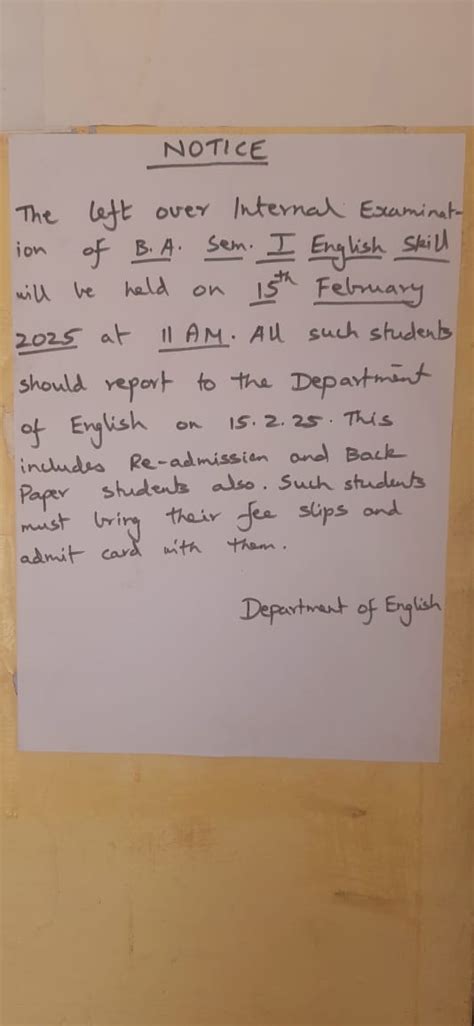 NOTICE
The left over Internal Examinat-
ion of B.A. Sem. I English Skill
will be held on 15th February
2025 at 11 AM. All such students
should report to the Department
of English on 15.2.25. This
includes Re-admission and Back
Paper students also. Such students
must bring their fee slips and
admit card with them.
Department of English